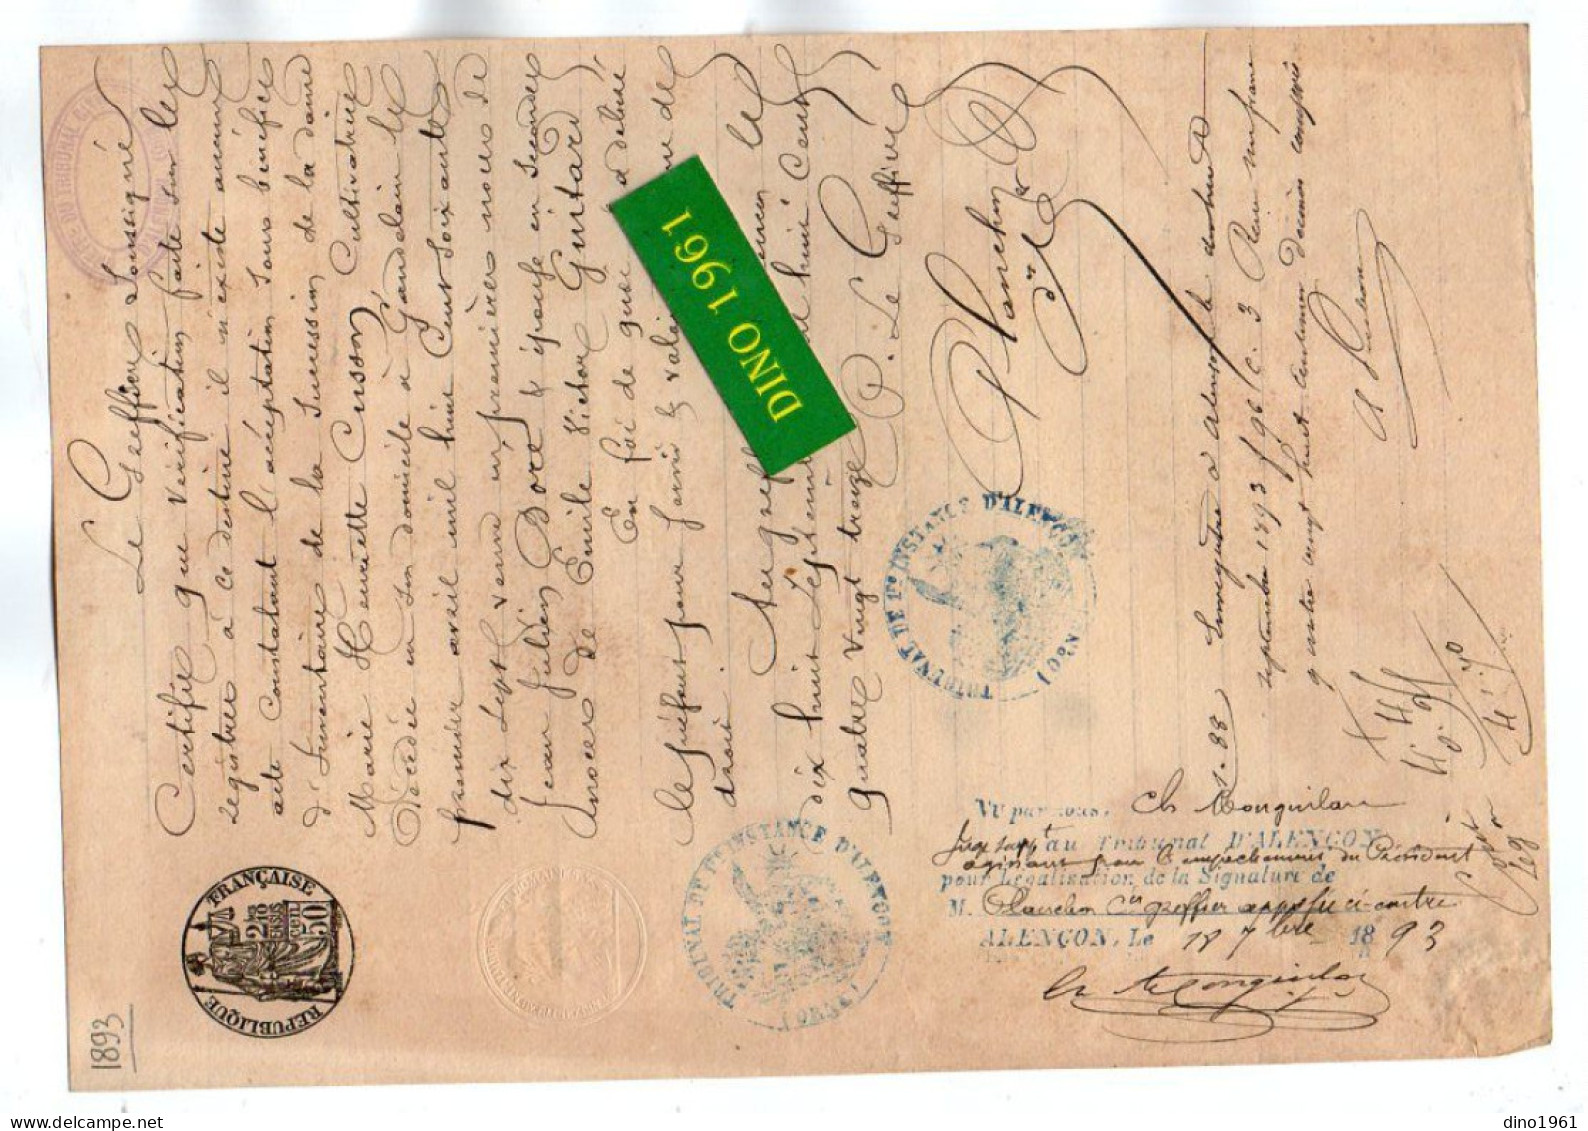 Le Greffier Soussigné
Certifie que vérification faite sur les
registres à ce destiné il n'existe aucun
acte Constatant l'acceptation sous bénéfice
d'Inventaire de la Succession de la dame
Marie Henriette Cusson, Cultivatrice
Décédée en son domicile à Gandelain le
premier avril mil huit Cent Soixante
dix Sept, veuve en premières noces de
Jean Julien Doré & épouse en Secondes
noces de Emile Victor Guitard
En foi de quoi a délivré
le présent pour servir & valoir de
droit.
Au greffe le
dix huit Septembre mil huit Cent
quatre vingt treize
P. Le Greffier
Planchon
Cis
DINO 1961
TRIBUNAL DE 1re INSTANCE D'ALENÇON
(ORNE)
TRIBUNAL DE 1re INSTANCE D'ALENÇON
(ORNE)
RÉPUBLIQUE FRANÇAISE
2/10 EN SUS
50 CEN.
1893
N. 88 Enregistré à Alençon le dix huit
septembre 1893 f 96 c. 3 Reçu un franc
quatre vingt huit centimes décimes compris
Vu par nous,
Juge suppt au Tribunal D'ALENÇON
agissant pour l'empechement du Président
pour Légalisation de la Signature de
M. Planchon Cis greffier apposée ci-contre
ALENÇON, Le 18 7bre 1893